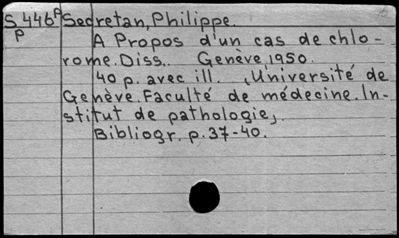 S 446ᵖ Secretan, Philippe.
p A Propos d'un cas de chlo-
rome. Diss.. Genève, 1950.
40 p. avec ill. (Université de
Genève. Faculté de médecine. In-
stitut de pathologie).
Bibliogr. p. 37-40.